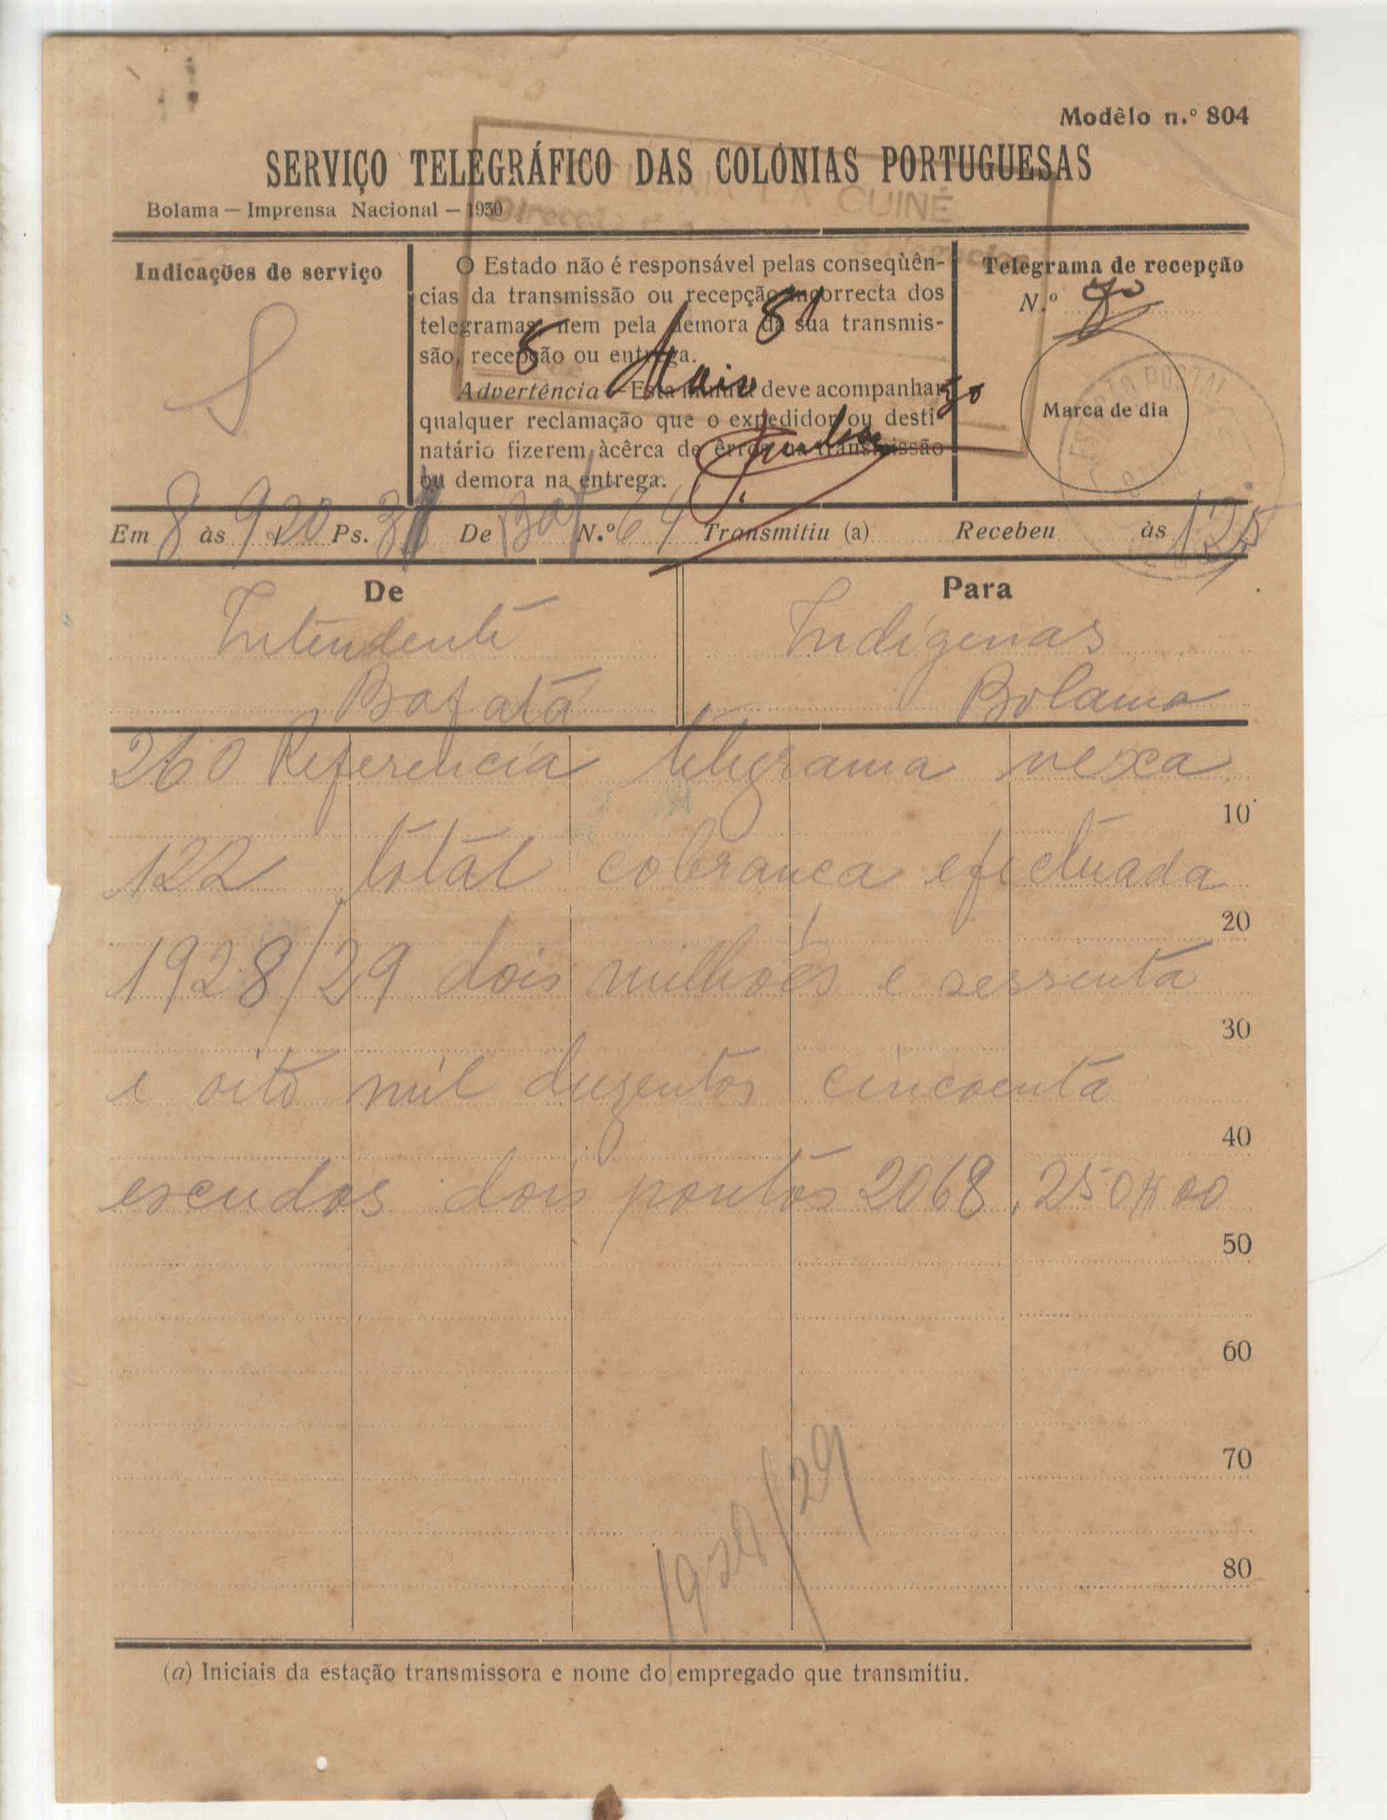 Modêlo n.º 804
SERVIÇO TELEGRÁFICO DAS COLÓNIAS PORTUGUESAS
Bolama — Imprensa Nacional — 1930
GUINÉ
Indicações de serviço
S
O Estado não é responsável pelas conseqùên-
cias da transmissão ou recepção incorrecta dos
telegramas, nem pela demora da sua transmis-
são, recepção ou entrega.
Advertência — Esta minuta deve acompanhar
qualquer reclamação que o expedidor ou desti-
natário fizerem àcêrca de êrros na transmissão
ou demora na entrega.
8 Maio
30
Telegrama de recepção
N.º
Marca de dia
POSTAL
Em 8 às 9,20 Ps. De Baf N.º 64 Transmitiu (a) Recebeu às
De
Intendente
Bafatá
Para
Indigenas
Bolama
260 Referencia telegrama vexa
10
122 total cobranca efectuada
20
1928/29 dois milhões e sessenta
30
e oito mil duzentos cincoenta
40
escudos dois pontos 2068,250$00
50
60
70
80
1928/29
(a) Iniciais da estação transmissora e nome do empregado que transmitiu.